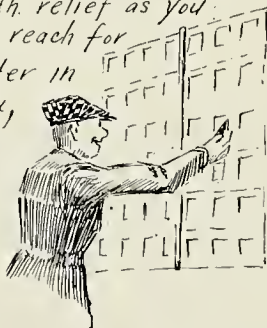 th relief as you
reach for
ter in